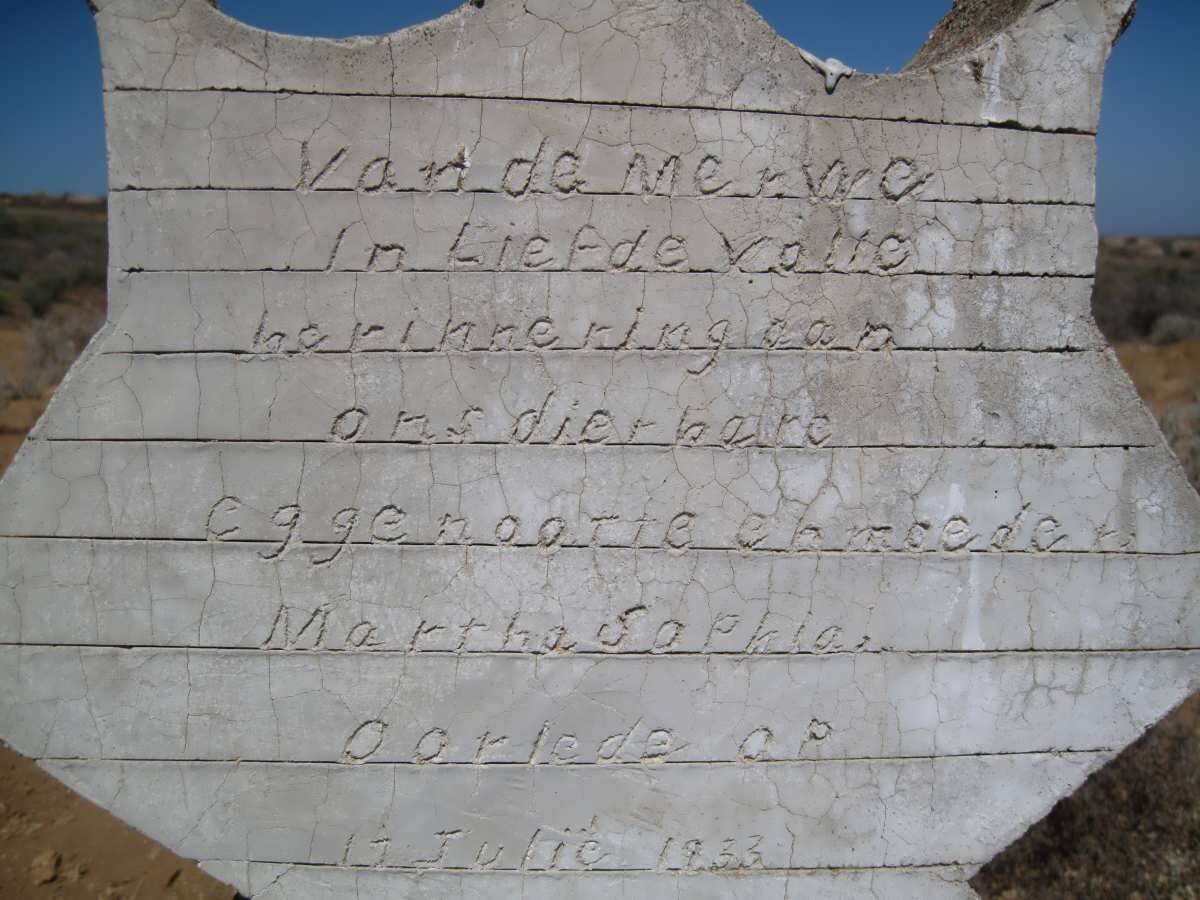 Van de Merwe
In Liefde Valle
herinnering aan
ons dierbare
Eggenootte en moeder
Martha Sophia.
Oorlede op
Julie 1933